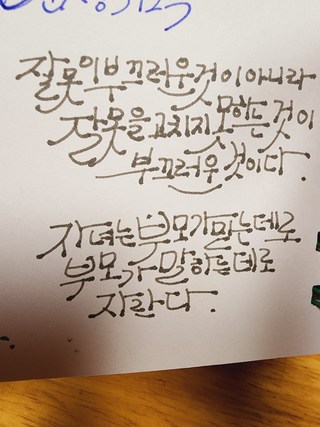 잘못이 부끄러운 것이 아니라
잘못을 고치지 못하는 것이
부끄러운 것이다.
자녀는 부모가 믿는데로
부모가 말하는데로
자란다.